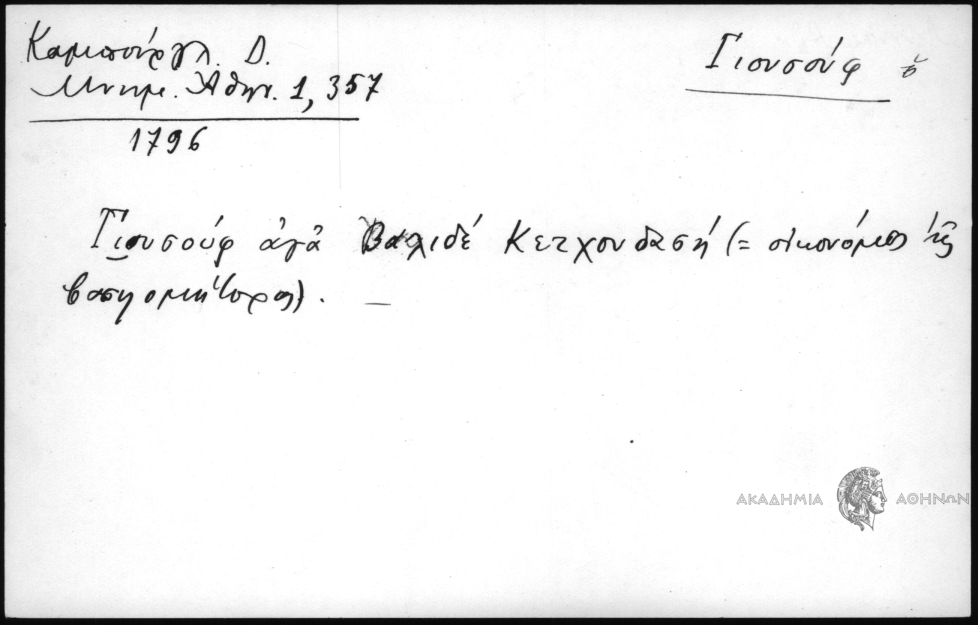 Καμπούργλ. Δ.
Μνημ. Ἀθην. 1, 357
1796
Γιουσούφ ὁ
Γιουσούφ ἀγᾶ Βαλιδέ Κετχουδασή (= οἰκονόμος τῆς
βασιλομήτορος). —
ΑΚΑΔΗΜΙΑ ΑΘΗΝΩΝ